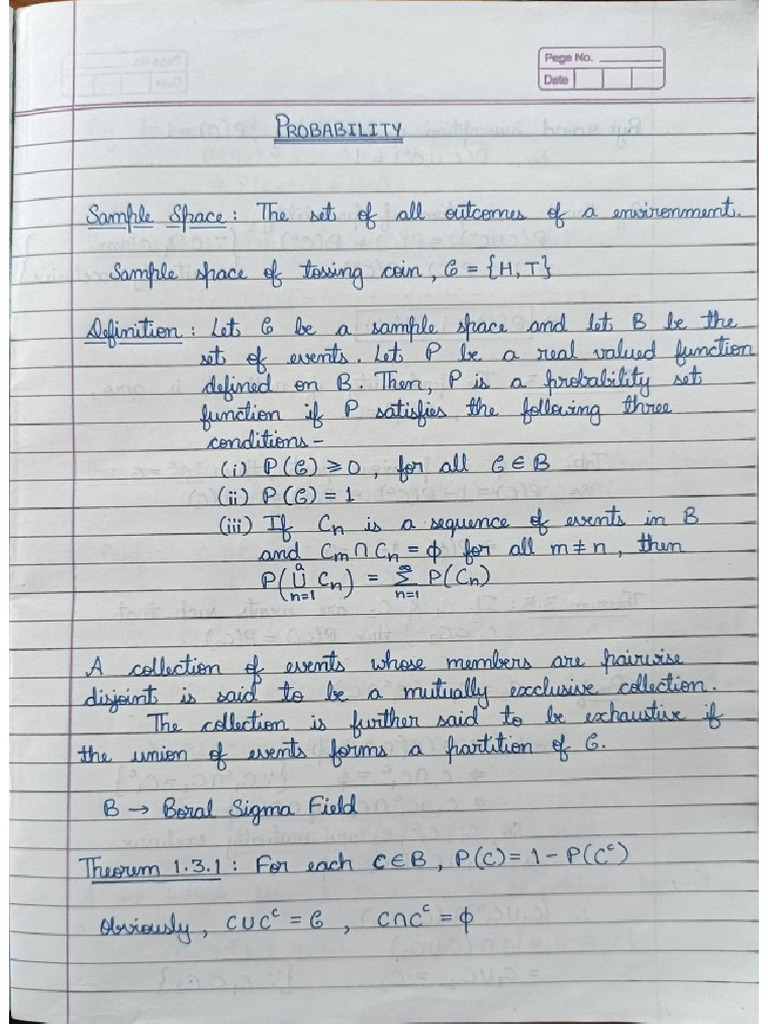 Page No.
Date
PROBABILITY
Sample Space : The set of all outcomes of a environment.
Sample space of tossing coin, 𝒞 = {H, T}
Definition : Let 𝒞 be a sample space and let B be the
set of events. Let P be a real valued function
defined on B. Then, P is a probability set
function if P satisfies the following three
conditions –
(i) P(𝒞) ≥ 0, for all 𝒞 ∈ B
(ii) P(𝒞) = 1
(iii) If Cn is a sequence of events in B
and Cm ∩ Cn = ϕ for all m ≠ n, then
P(⋃ₙ₌₁ᵃ Cn) = ∑ₙ₌₁^∞ P(Cn)
A collection of events whose members are pairwise
disjoint is said to be a mutually exclusive collection.
The collection is further said to be exhaustive if
the union of events forms a partition of 𝒞.
B → Boral Sigma Field
Theorem 1.3.1 : For each C ∈ B, P(C) = 1 – P(Cᶜ)
Obviously, C ∪ Cᶜ = 𝒞 , C ∩ Cᶜ = ϕ